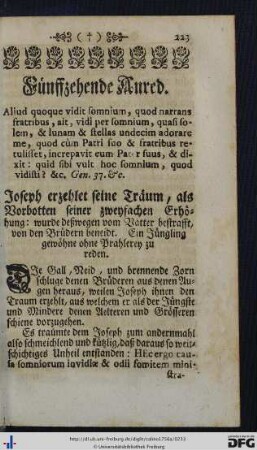 ( † ) 223
Fünffzehende Aured.
Aliud quoque vidit somnium, quod narrans
fratribus, ait, vidi per somnium, quasi so-
lem, & lunam & stellas undecim adorare
me, quod cùm Patri suo & fratribus re-
tulisset, increpavit eum Pater suus, & di-
xit: quid sibi vult hoc somnium, quod
vidisti? &c. Gen. 37. &c.
Joseph erzehlet seine Träum, als
Vorbotten seiner zweyfachen Erhö-
hung: wurde deßwegen vom Vatter bestrafft,
von den Brüdern beneidt. Ein Jüngling
gewöhne ohne Prahlerey zu
reden.
DIe Gall, Neid, und brennende Zorn
schluge denen Brüderen aus denen Au-
gen heraus, weilen Joseph ihnen den
Traum erzehlt, aus welchem er als der Jüngste
und Mindere denen Aelteren und Grösseren
schiene vorzugehen.
Es traumte dem Joseph zum andernmahl
also schmeichlend und kützlig, daß daraus so weit-
schichtiges Unheil entstanden: Hæc ergo cau-
sa somniorum invidiæ & odii fomitem mini-
stra-
http://dl.ub.uni-freiburg.de/diglit/callenst1756a/0313
© Universitätsbibliothek Freiburg